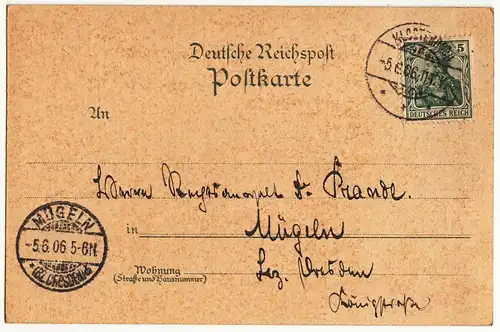 Deutsche Reichspost
Postkarte
5
-5.6.06.
DEUTSCHES REICH
An
Herrn Rechtsanwalt Dr.
in Mügeln
Bez. Dresden
Königstraße
Wohnung
(Straße und Hausnummer)
MÜGELN
-5.6.06 5-6N.
* (BZ. DRESDEN) *